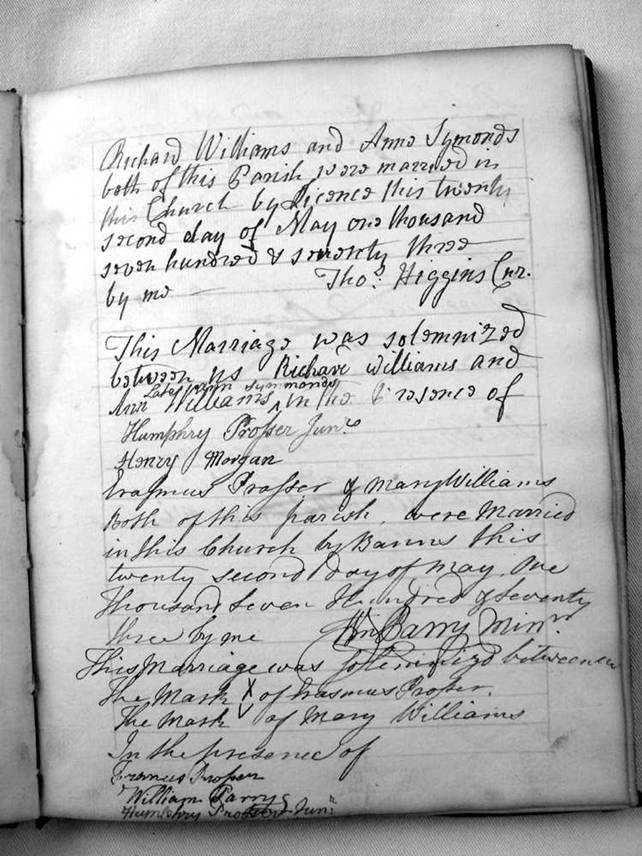 Richard Williams and Anne Symonds
both of this Parish were married in
this Church by Licence this twenty
second day of May one thousand
seven hundred & seventy three
by me Tho.s Higgins Cur.
This Marriage was solemnized
between us Richard williams and
Late ann Symmonds
Ann Williams ‸ In the Presence of
Humphry Prosser Jun.r
Henry Morgan
Erasmus Prosser & Mary Williams
Both of this parish, were Married
in this Church by Banns this
twenty second day of May, One
Thousand Seven Hundred & Seventy
three by me Wm Parry Minr.
This Marriage was Solemnizd between us
The Mark X of Erasmus Prosser.
The Mark V of Mary Williams
In the presence of
Prosser
William Parry
Humphry Prosser Junr